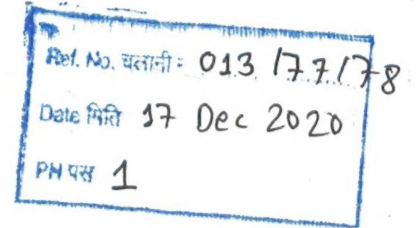 Ref. No. चलानी: 013/77/78
Date मिति 17 Dec 2020
PN पस 1